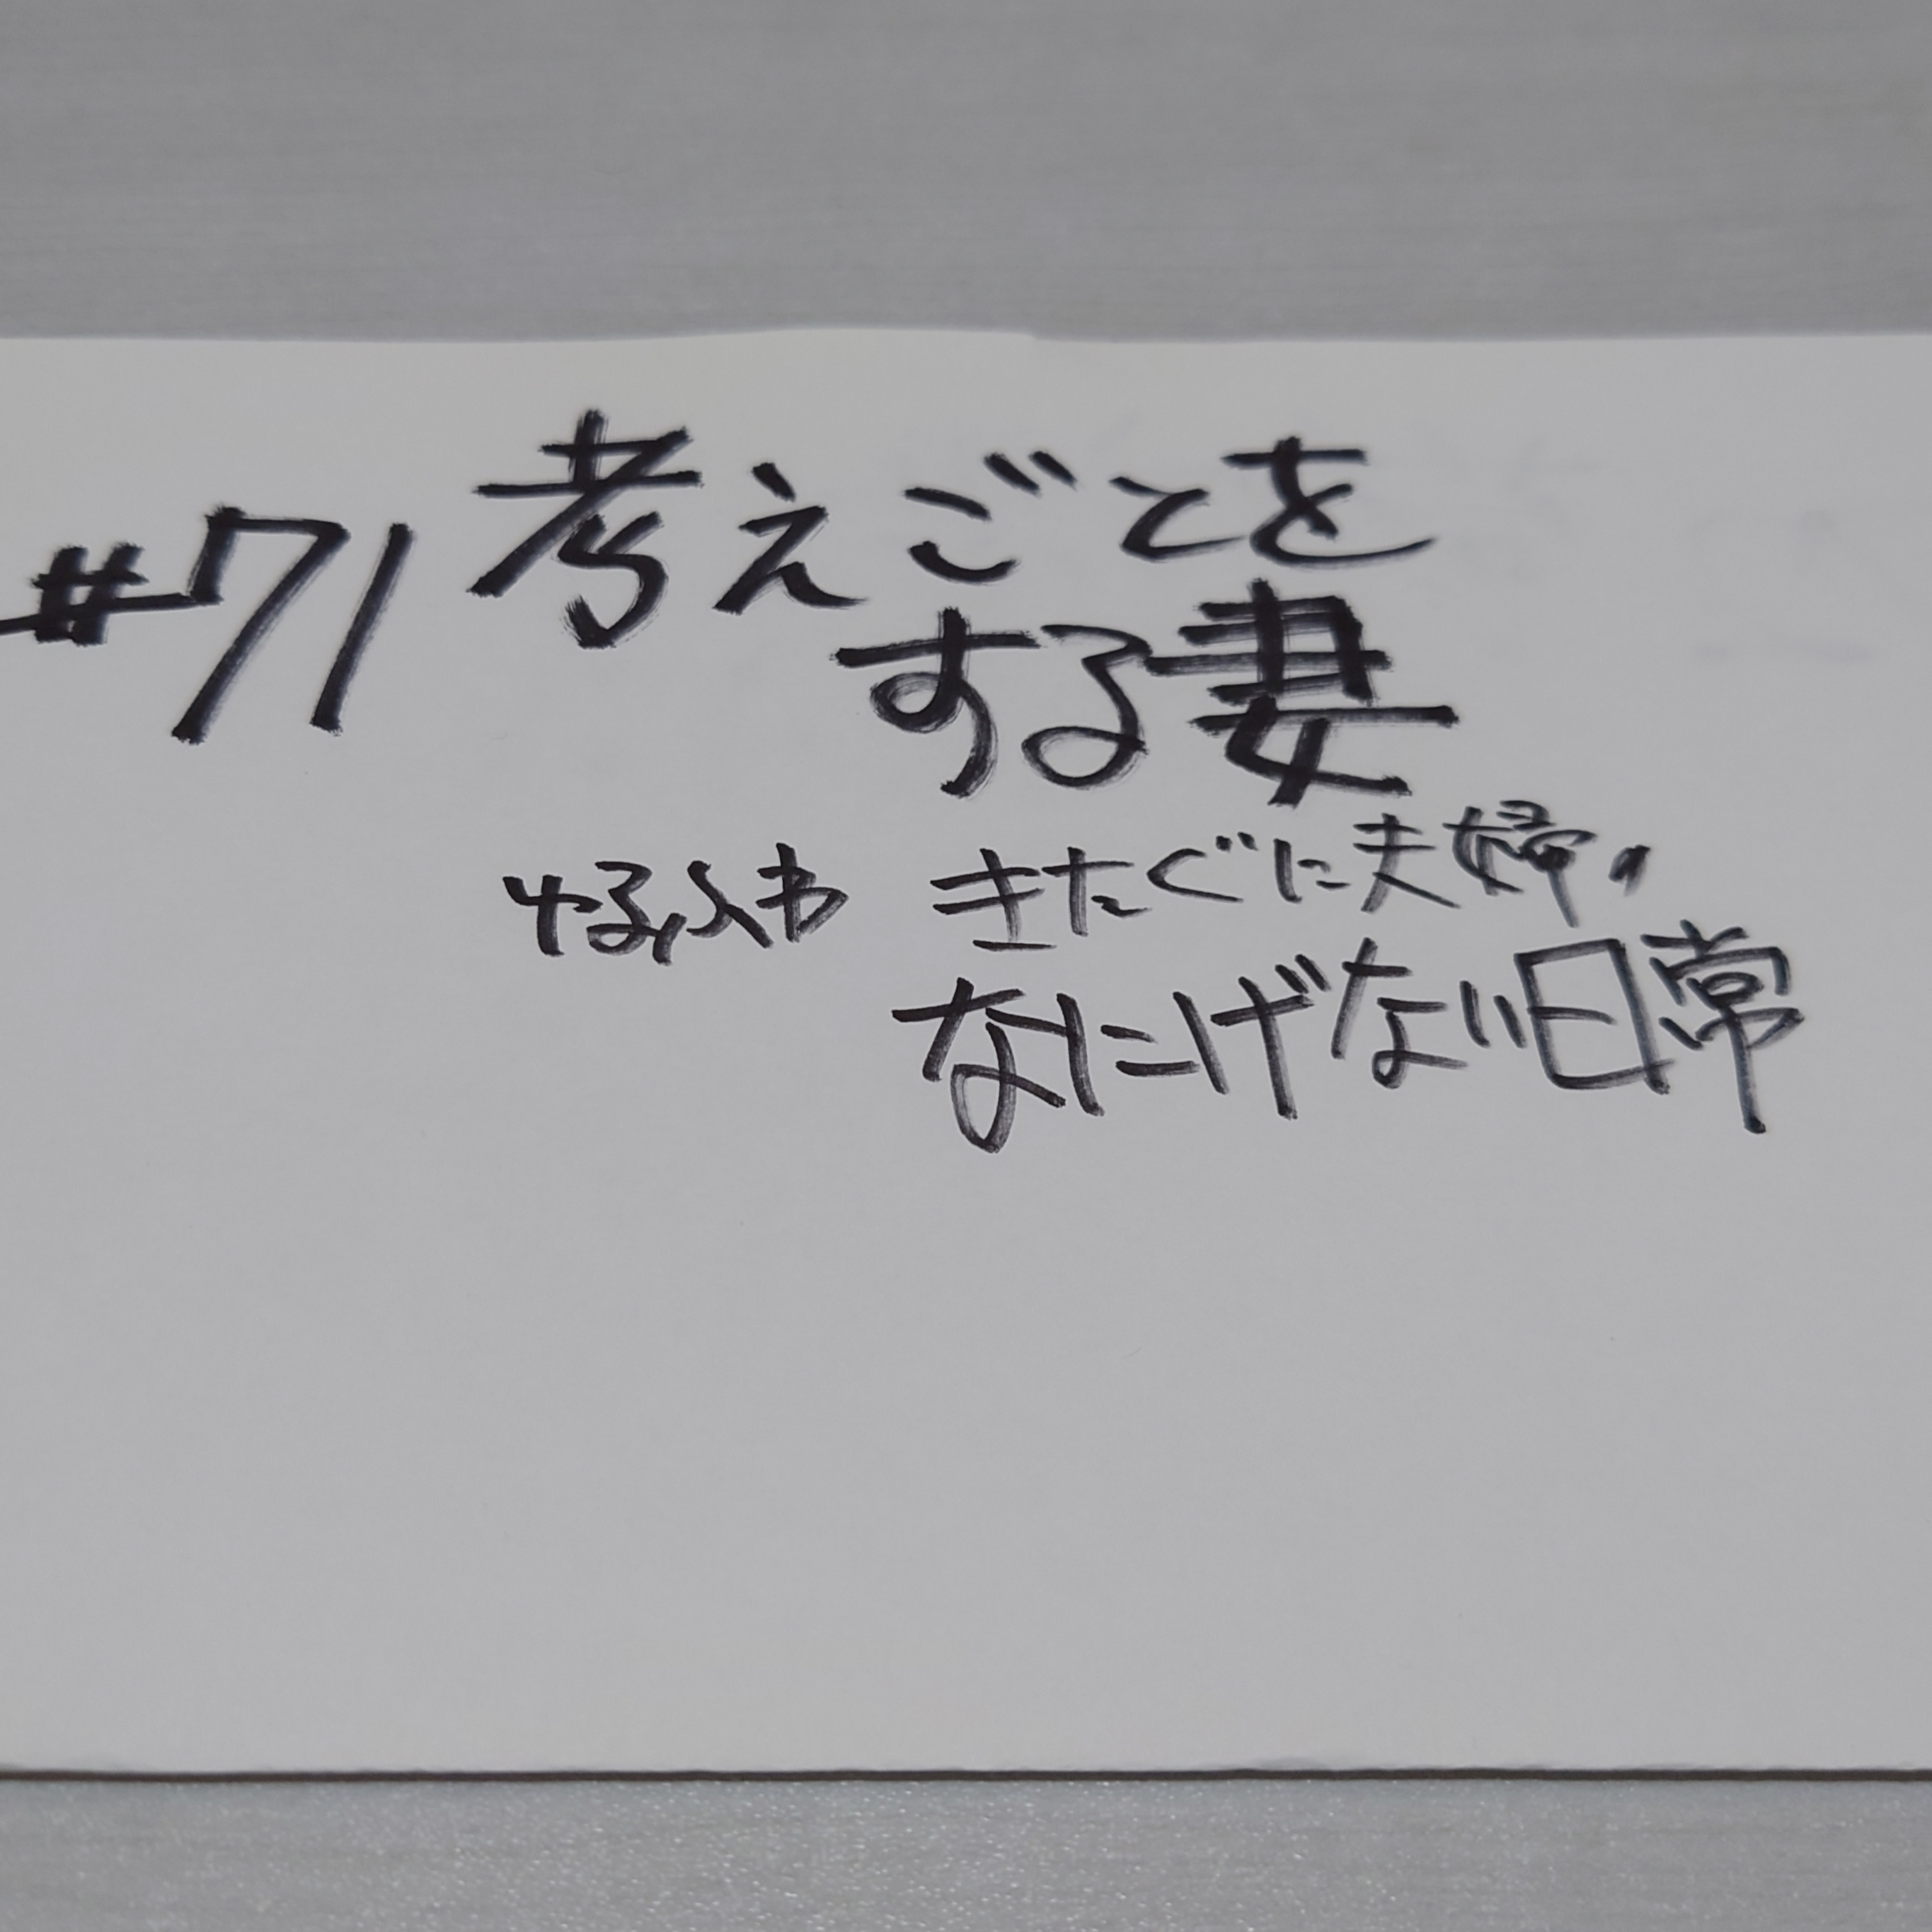 #71 考えごとを
する妻
ゆるふわ きたぐに夫婦の
なにげない日常